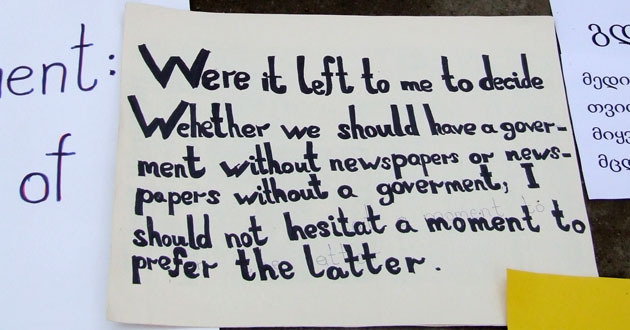 ent:
of
Were it left to me to decide
Wehether we should have a gover-
ment without newspapers or news-
papers without a goverment, I
should not hesitat a moment to
prefer the latter.
მედი
თვი
მიყვ